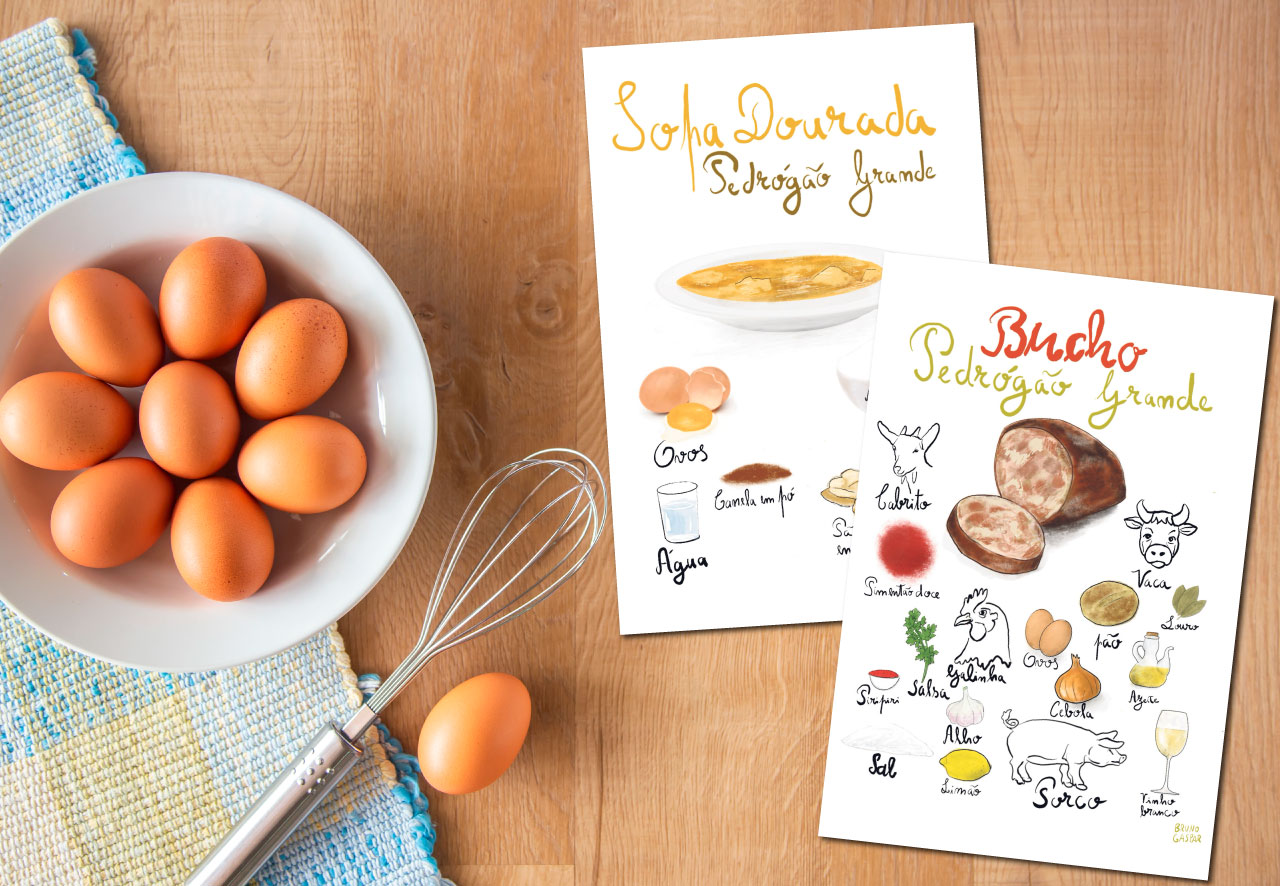 Sopa Dourada
Pedrógão Grande
Ovos
Canela em pó
Água
Bucho
Pedrógão Grande
Cabrito
Vaca
Pimentão doce
Louro
pão
Ovos
Galinha
Salsa
Piripiri
Azeite
Cebola
Alho
Sal
Limão
Porco
Vinho
branco
BRUNO
GASPAR